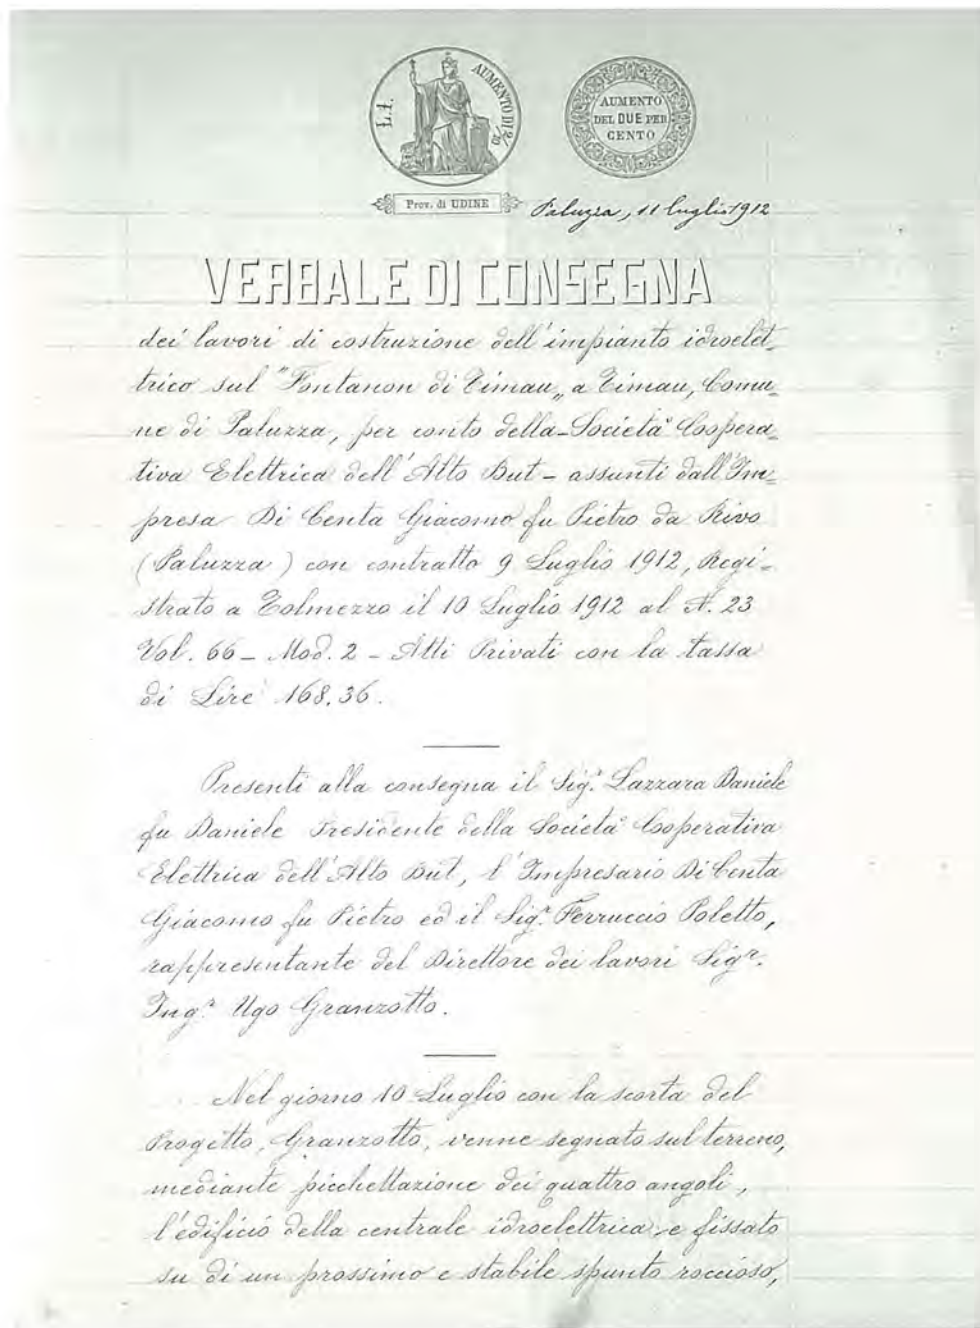 L.1.
AUMENTO DI 2/10
AUMENTO
DEL DUE PER
CENTO
Prov. di UDINE
Paluzza, 11 luglio 1912
VERBALE DI CONSEGNA
dei lavori di costruzione dell'impianto idroelet-
trico sul "Fontanon di Timau„ a Timau, Comu-
ne di Paluzza, per conto della - Società Coopera-
tiva Elettrica dell'Alto But - assunti dall'Im-
presa Di Centa Giacomo fu Pietro da Rivo
(Paluzza) con contratto 9 Luglio 1912, Regi-
strato a Tolmezzo il 10 Luglio 1912 al N. 23
Vol. 66 - Mod. 2 - Atti Privati con la tassa
di Lire 168.36.
Presenti alla consegna il Sigr. Lazzara Daniele
fu Daniele Presidente della Società Cooperativa
Elettrica dell'Alto But, l'Impresario Di Centa
Giacomo fu Pietro ed il Sigr. Ferruccio Poletto,
rappresentante del Direttore dei lavori Sigr.
Ingr. Ugo Granzotto.
Nel giorno 10 Luglio con la scorta del
Progetto, Granzotto, venne segnato sul terreno,
mediante picchettazione dei quattro angoli,
l'edificio della centrale idroelettrica, e fissato
su di un prossimo e stabile spunto roccioso,